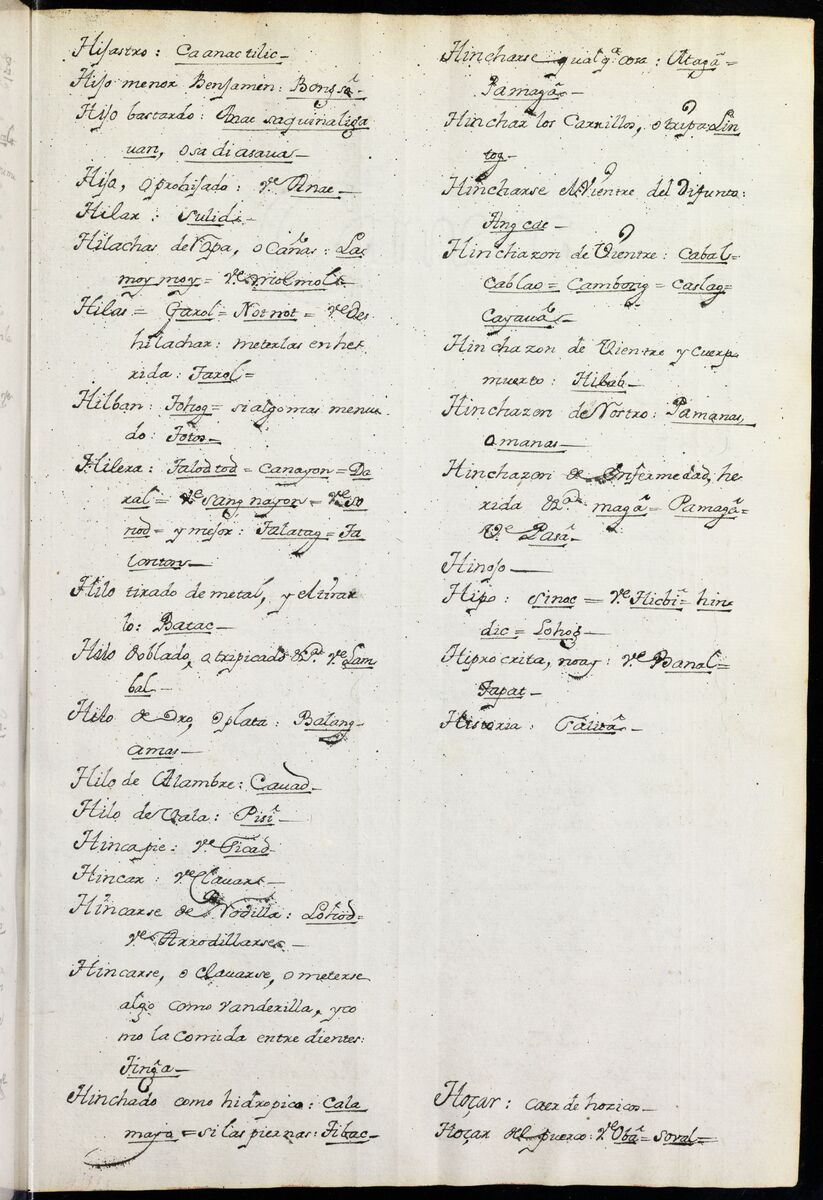 Hijastro: Caanactilic_
Hijo menor Benjamin: Bongsõ_
Hijo bastardo: Anac saguinaliga
uan, o sa di asaua_
Hijo, o prohijado: v.e Anac_
Hilar: Sulidi_
Hilachas de Ropa, o Cañas: La
moymoy= v.e molmol_
Hilas= Garol= Notnot= v.e Des
hilachar: meterlas en he
rida: Tarol=
Hilban: Tohog= si algo mas menu
do Totos_
Hilera: Talodtod= canayon= Da
ral= v.e sang nayon= v.e so
nod= y mejor: Talatag= Ta
lonton_
Hilo tirado de metal, y el tirar
lo: Batac_
Hilo doblado, o tripicado &.a v.e Lam
bal_
Hilo de Oro, o plata: Balang
amas_
Hilo de Alambre: Cauad_
Hilo de Vala: Pisi_
Hincapie: v.e Ticad_
Hincar: v.e Clauar_
Hincarse de Rodilla: Lohod=
v.e Arrodillarse_
Hincarse, o clauarse, o meterse
algo como vanderilla, y co
mo la comida entre dientes:
Tinga_
Hinchado como hidropico: Cala
mayo= si las piernas: Tibac_
Hincharse qualq.a cosa: Atagã=
Pamagã_
Hinchar los Carrillos, o tripa: Lin
tog_
Hincharse el Vientre del Difunto:
Angcac_
Hinchazon de Vientre: Cabal=
cablao= Cambong= caslag=
Cayauã_
Hinchazon de Vientre y cuerp.
muerto: Hibab_
Hinchazon de Rostro: Pamanas,
amanas_
Hinchazon de enfermedad, he
rida &.a magã= Pamagã=
V.e Pasã_
Hinojo_
Hipo: sinoc= v.e Hicbi= hin
dic= Lohog_
Hiprocrita, noag: v.e Banal=
Tapat_
Historia: Salitã_
Hoçar: caer de hozicos_
Hoçar del puerco: v.e Obã= Soual=